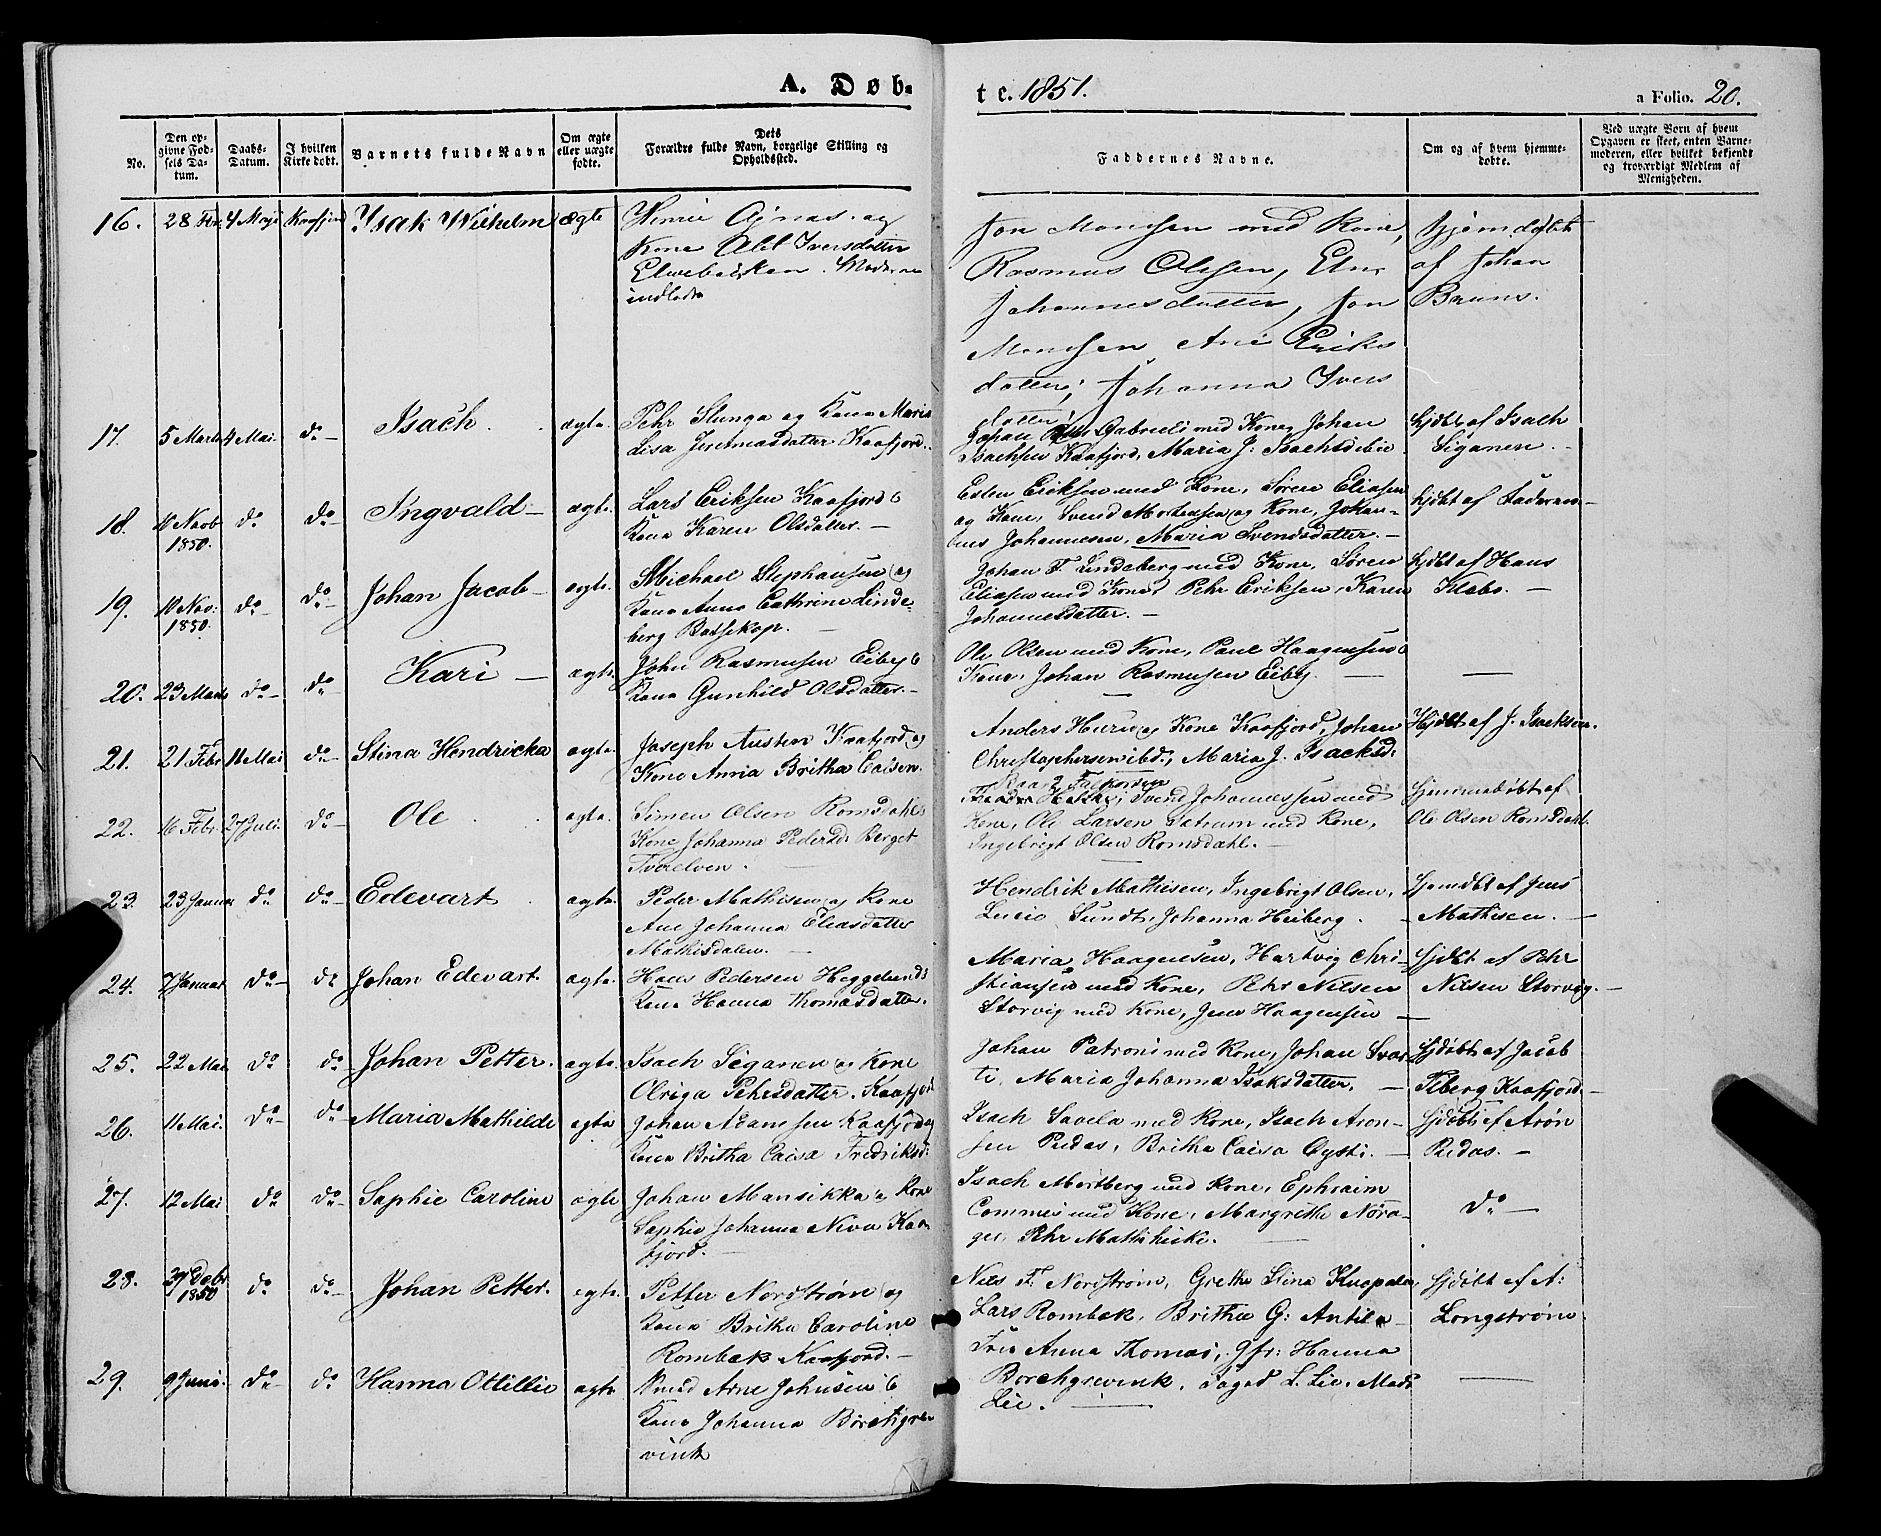 A. Døb-
te. 1851.
a Folio. 20.
No.
Den opgivne Fodsels Datum.
Daabs-Datum.
I hvilken Kirke dobt.
Barnets fulde Navn
Om ægte eller uægte fodte.
Dets Forældre fulde Navn, borgelige Stilling og Opholdssted.
Faddernes Navne.
Om og af hvem hjemmedobte.
Ved uægte Born af hvem Opgaven er skeet, enten Barnemoderen, eller hvilket bekjendt og troværdigt Medlem af Menigheden.
16. 28 Febr 4 Mai Kaafjord Isak Wilhelm ægte
og
Kone Abel Iversdatter
Jon Monsen med Kone,
Rasmus Olesen,
Johannesdatter, Jon
Monsen Ane Eriks
datter, Johanna Ivers
datter
Hjemdøbt
af Johan
Bruns.
17. 5 Marts 4 Mai. do Isach ægte.
Pehr Slunga og Kone Maria
Lisa Jeremiasdatter Kaafjord.
Johan Gabrieli med Kone, Johan
Isachsen Kaafjord, Maria J: Isachsdatter
hjdbt af Isach
Siganen.
18. 10 Novb 1850. do do Ingvald ægte.
Lars Eriksen Kaafjord &
Kone Karen Olsdatter. —
Esten Eriksen med Kone, Sören Eliasen
og Kone, Svend Mortensen og Kone, Johan-
nes Johannesen, Maria Svendsdatter. —
hjdbt af Faderen —
19. 10 Nov: 1850. do do Johan Jacob ægte.
Michael Stephansen og
Kone Anne Cathrine Linde-
berg Bossekop. —
Johan F. Lindeberg med Kone, Sören
Eliasen med Kone, Pehr Eriksen, Karen
Johannesdatter. —
hjdbt af Hans
Klæbo. —
20. 23 Marts do do Kari ægte.
John Rasmusen Eiby &
Kone Gunhild Olsdatter. —
Ole Olsen med Kone, Paul Haagensen &
Kone, Johan Rasmusen Eiby. —
21. 21 Febr 11 Mai do Stina Hendricka ægte.
Joseph Austen Kaafjord og
Kone Anna Britha Caisen.
Anders Huru og Kone Kaafjord, Johan
Christophersen ibd., Maria J. Isacksd:
Hjdbt af J. Isacksen.
22. 16 Febr. 27 Juli. do Ole ægte.
Simen Olsen Romsdahl &
Kone Johanna Pedersd: Berget
Tverelven.
Svend Johannessen med
Kone, Ole Larsen med Kone,
Ingebrigt Olsen Romsdahl. —
Hjemmedøbt af
Ole Olsen Romsdahl.
23. 23 Januar do do Edevart ægte.
Peder Mathisen og Kone
Ane Johanna Eliasdatter
Mathisdalen. —
Hendrik Mathisen, Ingebrigt Olsen,
Lucie Sundt, Johanna Heiberg.
Hjemdbt af Jens
Mathisen. —
24. 7 Januar do do Johan Edevart. ægte.
Hans Pedersen Heggelund &
Kone Hanna Thomasdatter.
Maria Haagensen, Hartvig Chri-
stiansen med Kone, Pehr Nilsen
Storvig med Kone, Jens Haagensen —
Hjdbt af Pehr
Nilsen Storvig. —
25. 22 Mai. do do Johan Petter. ægte.
Isach Siganen og Kone
Olriga Pehrsdatter, Kaafjord
Johan Patroni med Kone, Johan Svar
ti, Maria Johanna Isaksdatter. —
Hjdøbt af Jacob
Kaafjord —
26. 11 Mai. do do Maria Mathilde ægte
Johan Adamsen Kaafjord og
Kone Britha Caisa Fredriksd:
Isach Savela med Kone, Isach Aron-
sen Pudas, Britha Caisa Cysti. —
Hjdøbt af Arøn
Pudas. —
27. 12 Mai do do Sophie Caroline ægte
Johan Mansikka & Kone
Sophie Johanna Niva Kaa
fjord. —
Isach Mortberg med Kone, Ephraim
Commes med Kone, Margrethe
Pehr
do —
28. 27 Decbr. 1850 do do Johan Petter. ægte.
Petter Nordstrøm og
Kone Britha Caroline
Rombak Kaafjord. —
Nils F. Nordstrøm, Grethe Stina
Lars Rombak, Britha G: Antila —
Hjdøbt af A:
Longstrøm
29. 9 Juni. do do Hanna Ottillie ægte
Smed Arne Johnsen &
Kone Johanna Borchgre-
vink
Frue Anna Thomas, Jfr: Hanna
Borchgrevink, L. Lie, Mads
Lie. —